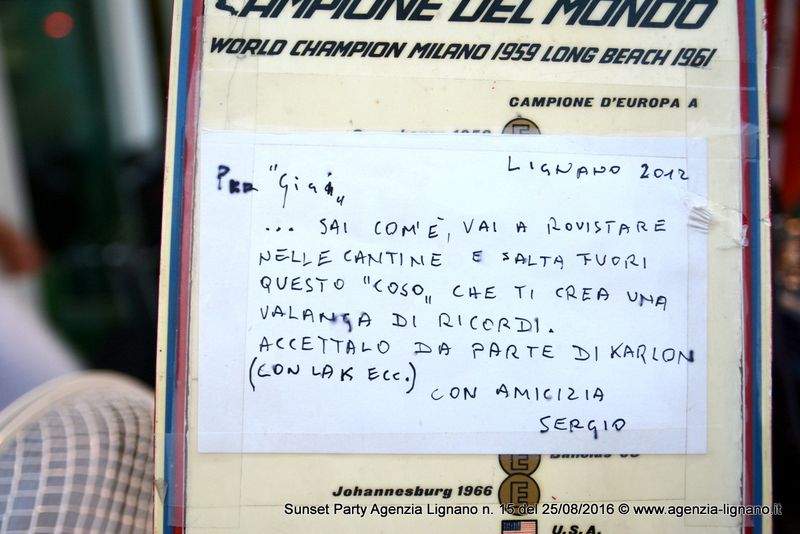 CAMPIONE DEL MONDO
WORLD CHAMPION MILANO 1959 LONG BEACH 1961
CAMPIONE D'EUROPA A
E
LIGNANO 2012
PER "Gigi„
... SAI COM'È, VAI A ROVISTARE
NELLE CANTINE E SALTA FUORI
QUESTO "COSO„ CHE TI CREA UNA
VALANGA DI RICORDI.
ACCETTALO DA PARTE DI KARLON
(CON LA K ECC.)
CON AMICIZIA
SERGIO
E
Johannesburg 1966 E
U.S.A.
Sunset Party Agenzia Lignano n. 15 del 25/08/2016 © www.agenzia-lignano.it